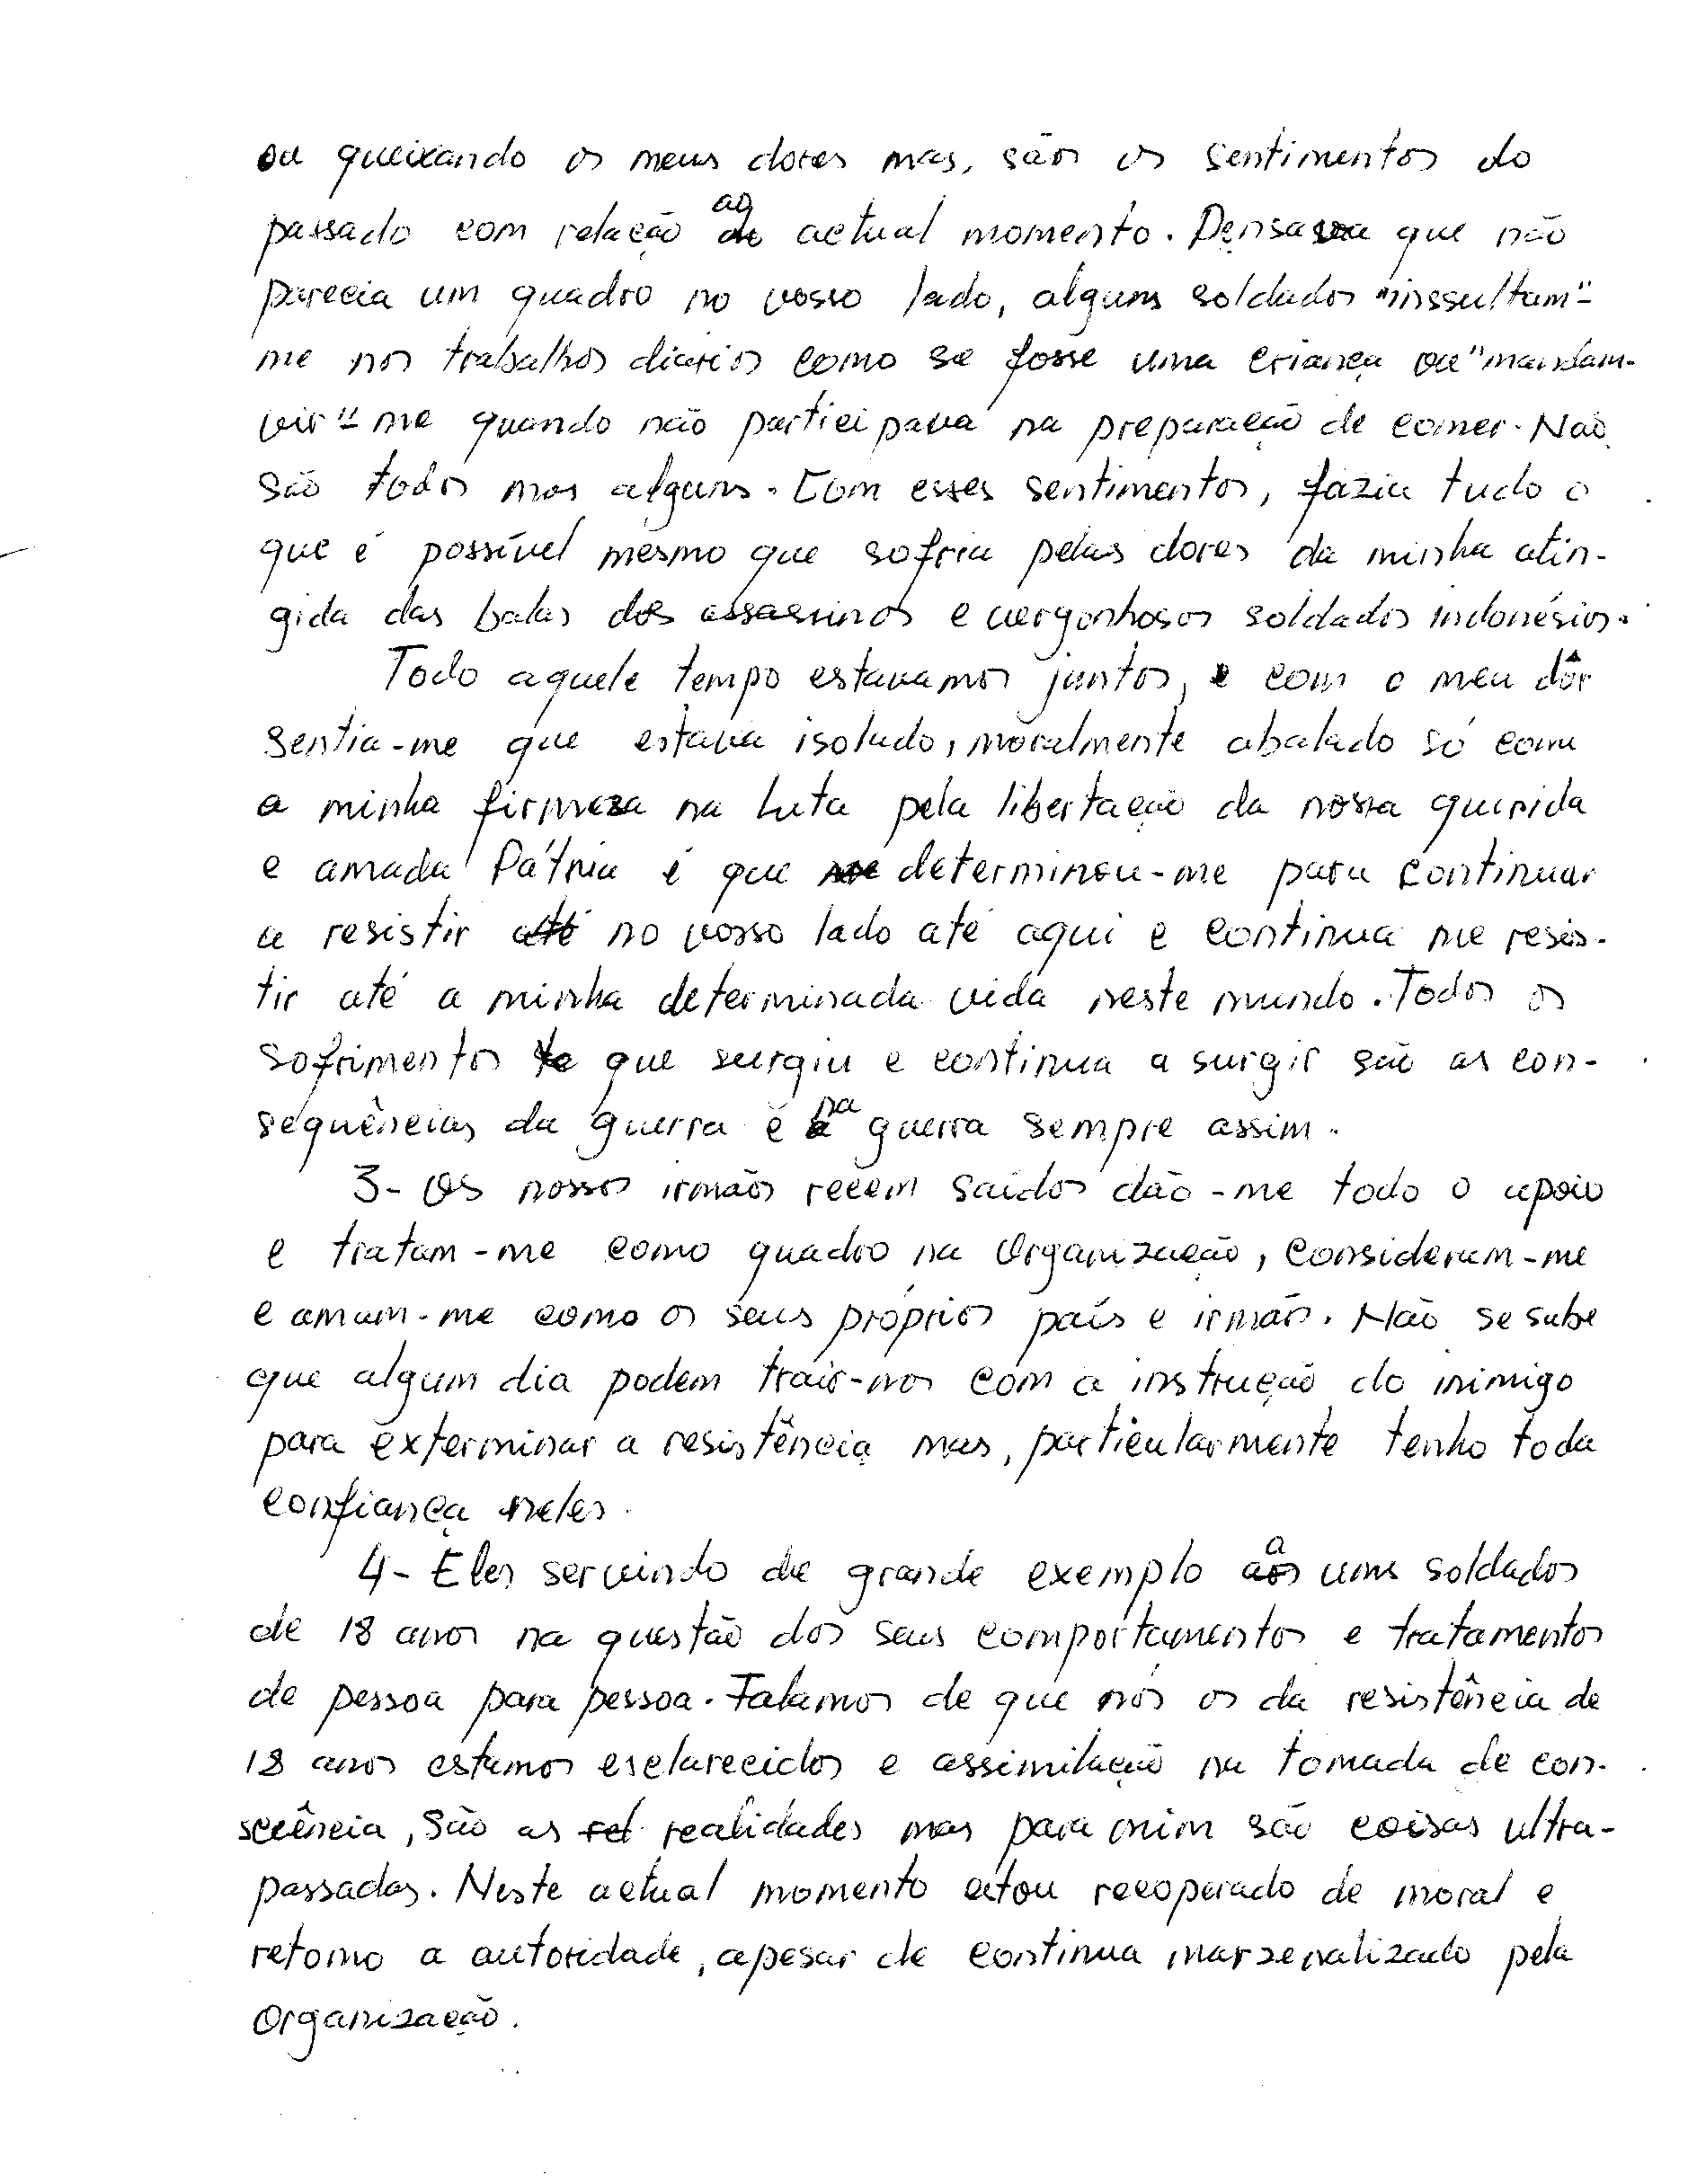 ou queixando os meus dores mas, são os sentimentos do
passado com relação ao actual momento. Pensava que não
parecia um quadro no vosso lado, alguns soldados "inssultam"-
me nos trabalhos diarios como se fosse uma criança ou "mandam-
vir"- me quando não participava na preparação de comer. Não
são todos mas alguns. Com esses sentimentos, fazia tudo o
que é possível mesmo que sofria pelas dores da minha atin-
gida das balas dos assassinos e vergonhosos soldados indonésios.
Todo aquele tempo estavamos juntos, e com o meu dôr
sentia-me que estava isolado, moralmente abalado só com
a minha firmeza na Luta pela libertação da nossa querida
e amada Pátria é que determinou-me para continuar
a resistir no vosso lado até aqui e continua me resis-
tir até a minha determinada vida neste mundo. Todos os
sofrimentos que surgiu e continua a surgir são as con-
sequências da guerra e na guerra sempre assim.
3- Os nossos irmãos recem saídos dão-me todo o apoio
e tratam-me como quadro na Organização, consideram-me
e amam-me como os seus próprios país e irmãos. Não se sabe
que algum dia podem trair-nos com a instrução do inimigo
para exterminar a resistência mas, particularmente tenho toda
confiança neles.
4- Eles servindo de grande exemplo a uns soldados
de 18 anos na questão dos seus comportamentos e tratamentos
de pessoa para pessoa. Falamos de que nós os da resistência de
18 anos estamos esclarecidos e assimilação na tomada de con-
sciência, são as realidades mas para mim são coisas ultra-
passadas. Neste actual momento estou recoperado de moral e
retomo a autoridade, apesar de continua marzenalizado pela
Organização.